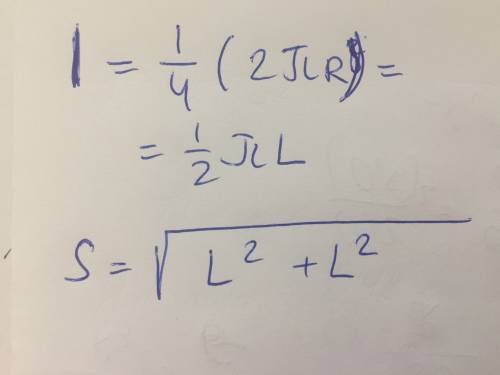 l = 1/4 (2πR) =
= 1/2 πL
S = √(L² + L²)